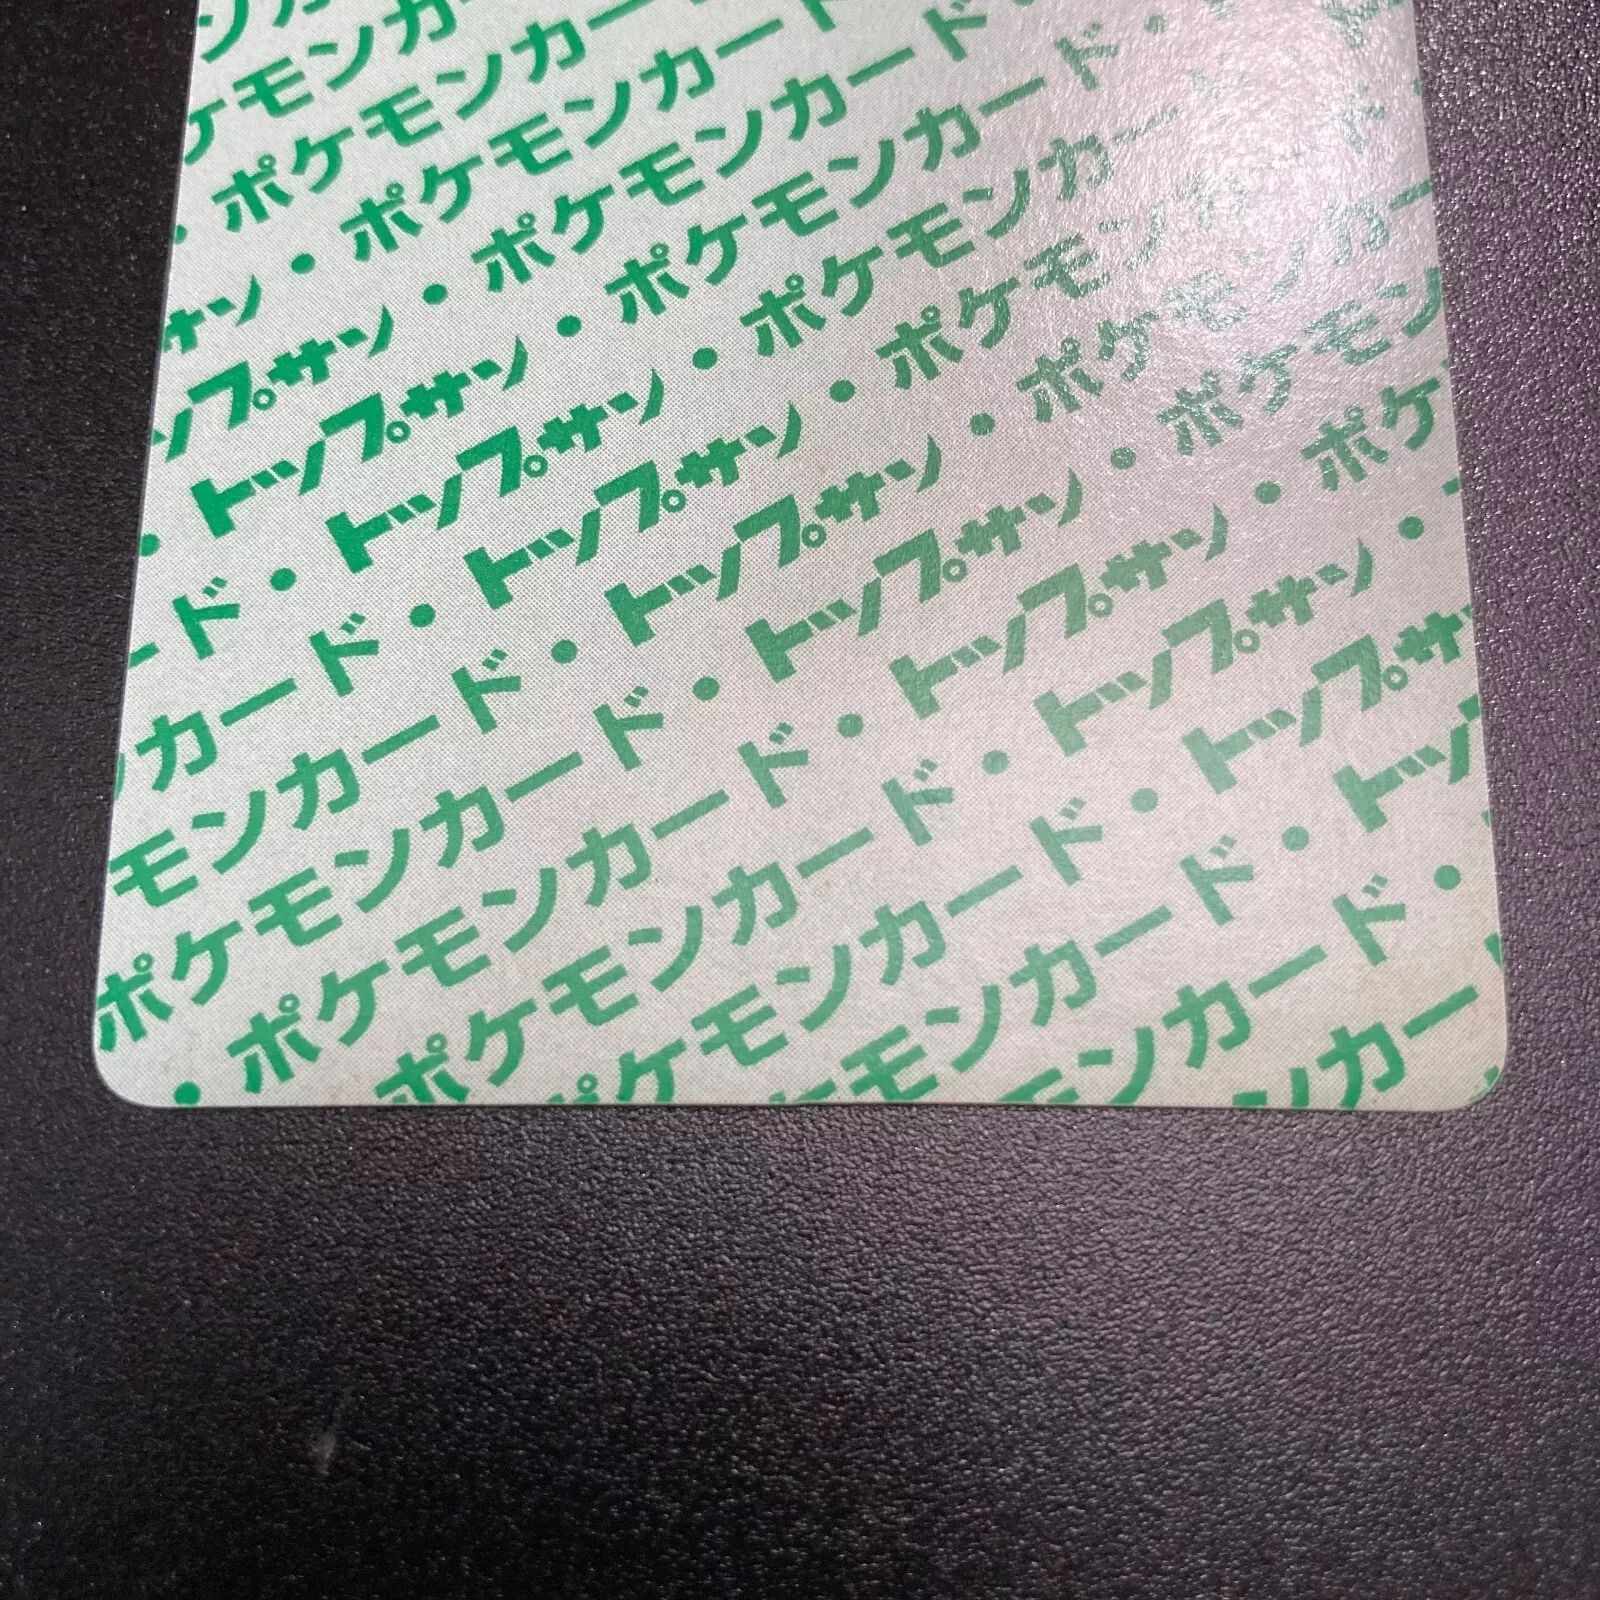 ンカ
ケモンカー
・ポケモンカード
サン・ポケモンカード・
ップサン・ポケモンカード・
・トップサン・ポケモンカード・
ード・トップサン・ポケモンカード・
カード・トップサン・ポケモンカード
モンカード・トップサン・ポケモンカー
ポケモンカード・トップサン・ポケモン
・ポケモンカード・トップサン・ポケ
ポケモンカード・トップサン・
ポケモンカード・トップサン・
ケモンカード・トップサ
モンカード・トッ
ンカード・
カー